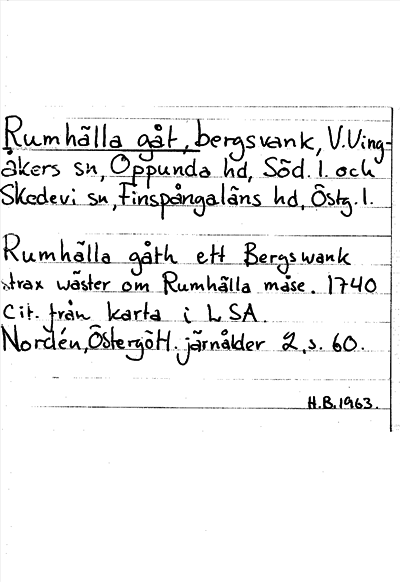 Rumhälla gåt, bergsvank, V.Ving-
åkers sn, Oppunda hd, Söd. l. och
Skedevi sn, Finspångaläns hd, Östg. l.
Rumhälla gåth ett Bergswank
strax wäster om Rumhälla måse. 1740
Cit. från karta i LSA.
Nordén, Östergötl. järnålder 2, s. 60.
H.B. 1963.